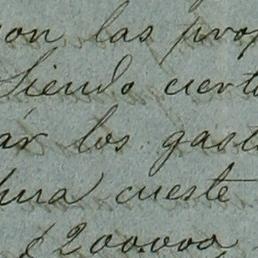 con las prop
Siendo cierto
ar los gast
hura cueste
$200.000